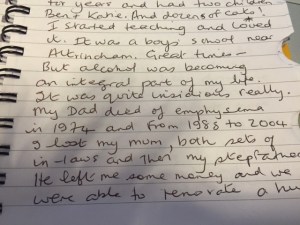 for years and had two children
Ben & Katie. And dozens of cats!
I started teaching and loved
it. It was a boys' school near
Altrincham. Great times -
But alcohol was becoming
an integral part of my life.
It was quite insidious really.
My Dad died of emphysema
in 1974 and from 1988 to 2004
I lost my mum, both sets of
in-laws and then my stepfather
He left me some money and we
were able to renovate a